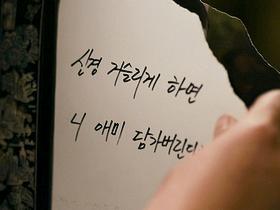 신경 거슬리게 하면
니 애미 담가버린다